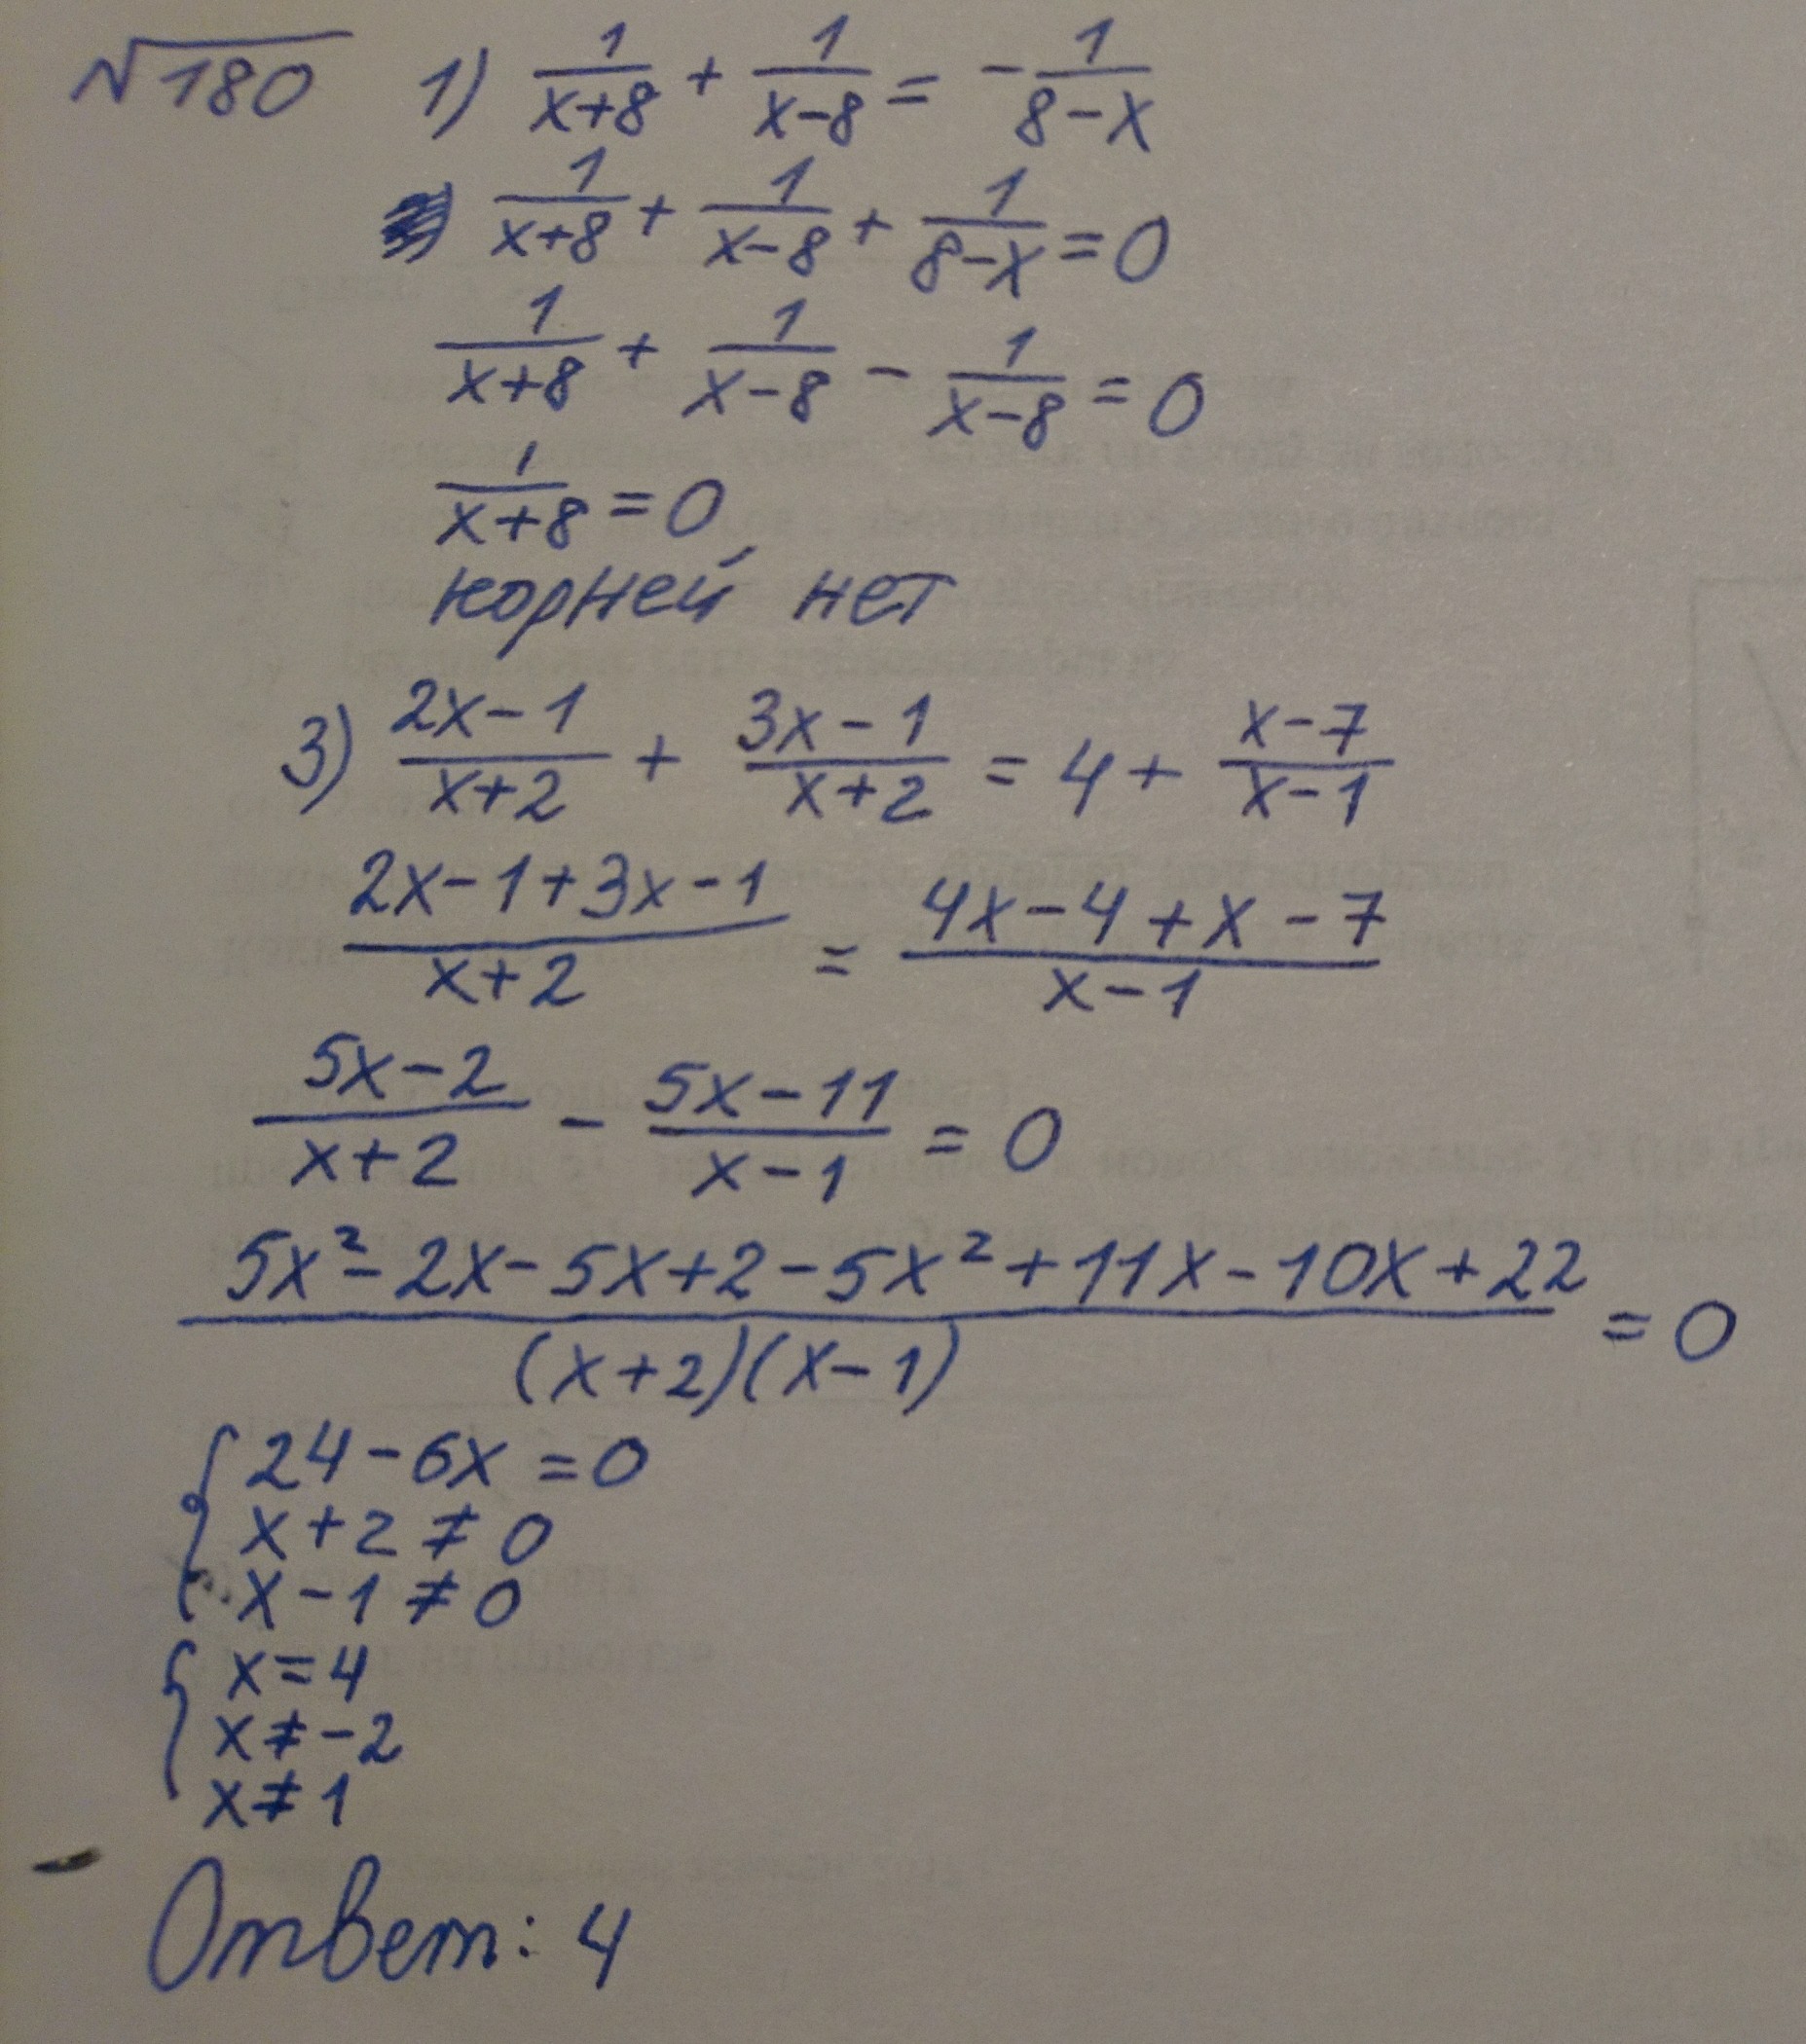 √180 1) 1/(x+8) + 1/(x-8) = - 1/(8-x)
1/(x+8) + 1/(x-8) + 1/(8-x) = 0
1/(x+8) + 1/(x-8) - 1/(x-8) = 0
1/(x+8) = 0
корней нет
3) (2x-1)/(x+2) + (3x-1)/(x+2) = 4 + (x-7)/(x-1)
(2x-1+3x-1)/(x+2) = (4x-4+x-7)/(x-1)
(5x-2)/(x+2) - (5x-11)/(x-1) = 0
(5x²-2x-5x+2-5x²+11x-10x+22)/((x+2)(x-1)) = 0
{ 24-6x = 0
x+2 ≠ 0
x-1 ≠ 0
{ x = 4
x ≠ -2
x ≠ 1
Ответ: 4